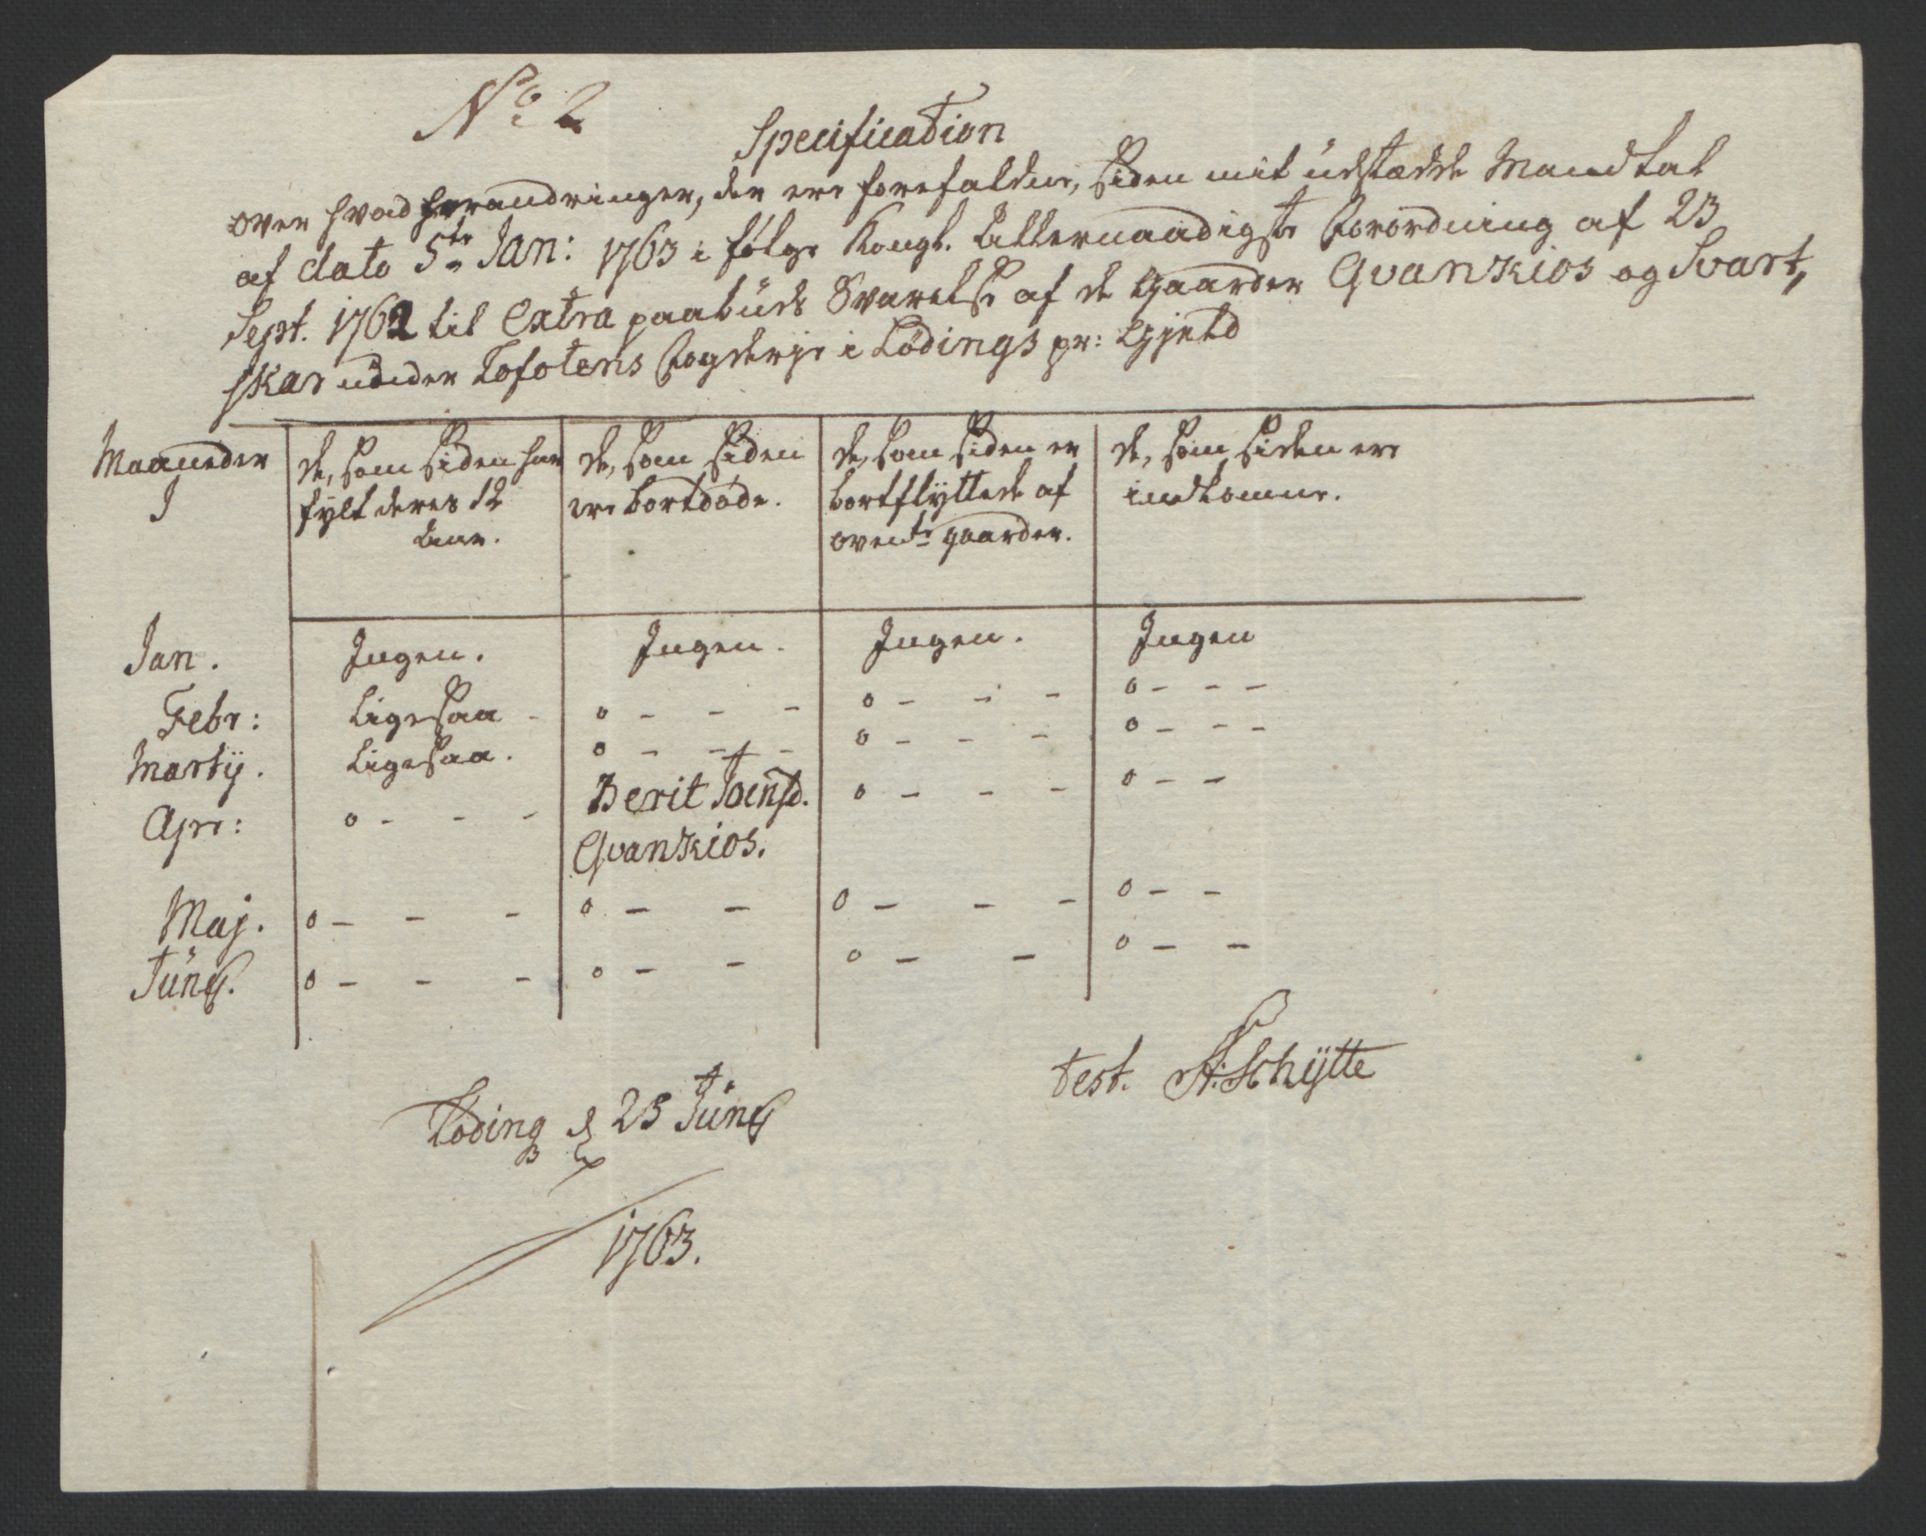 No. 2
Specification
over hvad forandringer, der ere forefaldne, siden mit üdstædde Mandtal
af dato 5te Jan: 1763 i følge Kongl. Allernaadigste Forordning af 23
Sept. 1762 til Extra paabüds Svarelse af de Gaarder Qvankios og Svart,
skar under Lofotens Fogderje i Lødings pr: Gjeld
Maaneder
de, som siden har
fylt deres 12
Aar.
de, som siden
ere bortdøde.
de, som siden er
bortflyttede af
ovente gaarder.
de, som siden ere
indkomne.
Jan. Ingen. Ingen. Ingen. Ingen
Febr: Ligesaa - 0 - - - 0 - - - 0 - - -
Martij. Ligesaa. 0 - - - 0 - - - 0 - - -
Apr: 0 - - - Berit Joensd. 0 - - - 0 - -
Qvankios.
Maj. 0 - - - 0 - - 0 - - - 0 - -
Junij. 0 - - - 0 - - 0 - - 0 - -
test. A: Schÿtte
Løding d 25 Junij
1763.